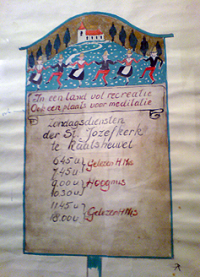 In een land vol recreatie
Ook een plaats voor meditatie
Zondagsdiensten
der St. Jozefkerk
te Kaatsheuvel
6.45 u
Gelezen H Mis
7.45 u
9.00 u
Hoogmis
10.30 u
11.45 u
Gelezen H Mis
18.00 u